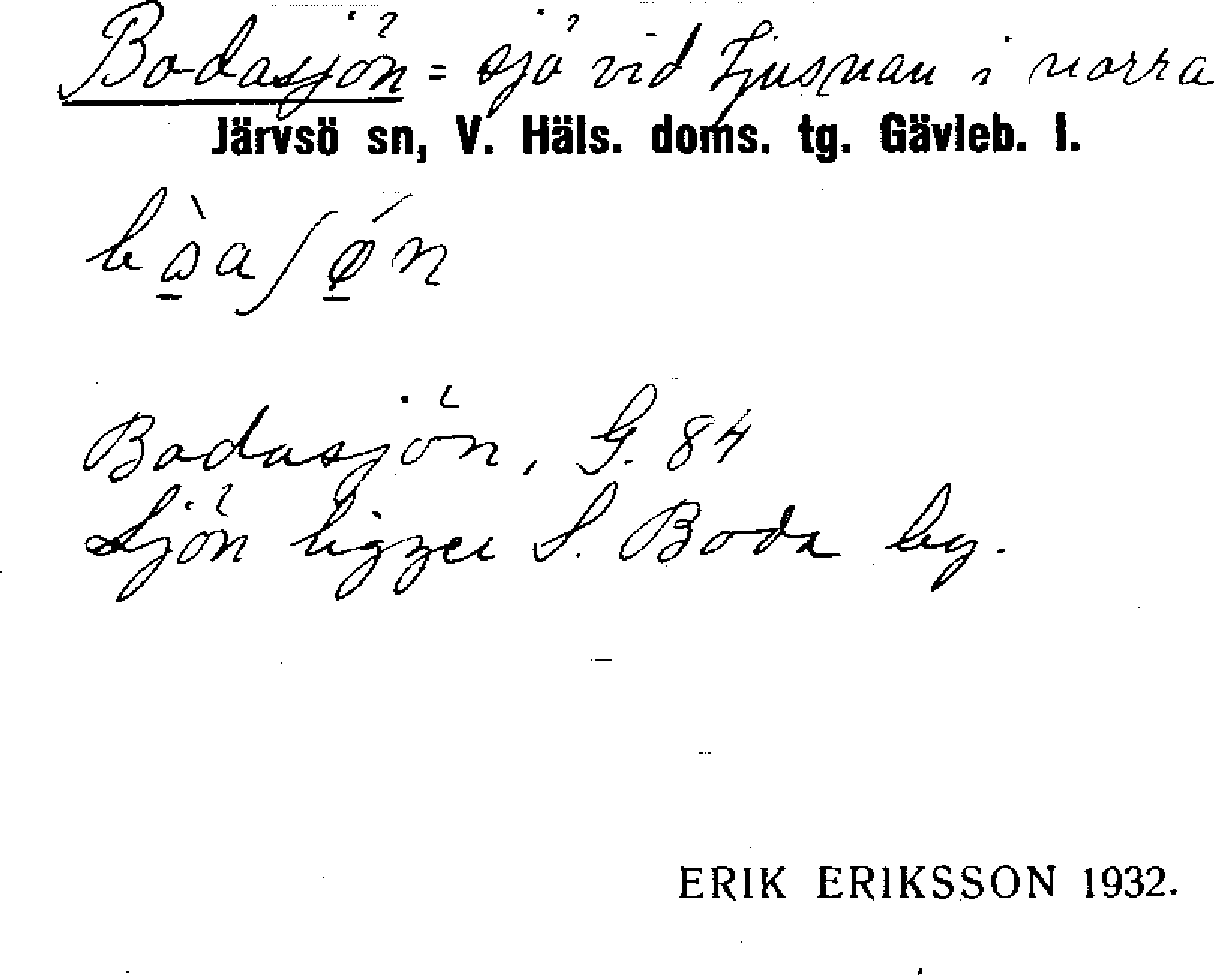 Bodasjön = sjö vid Ljusnan i norra
Järvsö sn, V. Häls. doms. tg. Gävleb. l.
Bodasjön, G. 84
Sjön ligger S. Boda by.
ERIK ERIKSSON 1932.